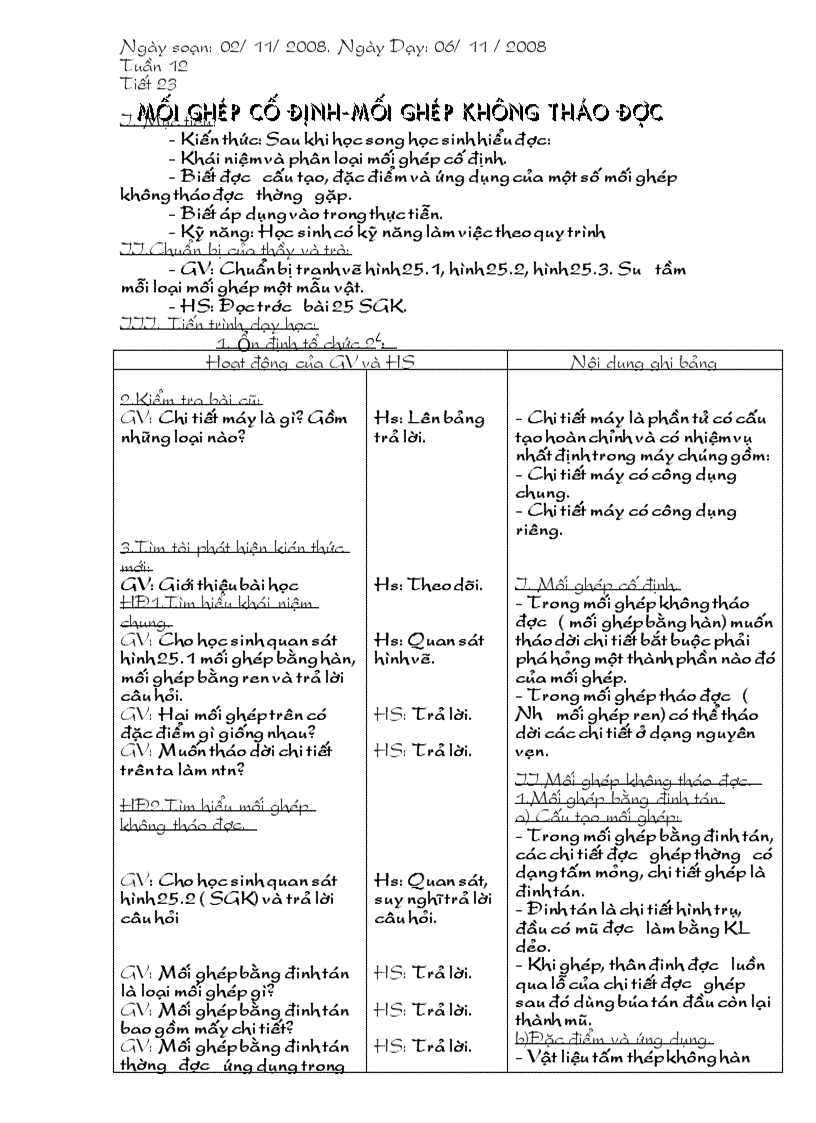 Ngày soạn: 02/ 11/ 2008. Ngày Dạy: 06/ 11 / 2008
Tuần 12
Tiết 23
MỐI GHÉP CỐ ĐỊNH-MỐI GHÉP KHÔNG THÁO ĐỢC
I. Mục tiêu:
- Kiến thức: Sau khi học song học sinh hiểu đợc:
- Khái niệm và phân loại mối ghép cố định.
- Biết đợc cấu tạo, đặc điểm và ứng dụng của một số mối ghép
không tháo đợc thờng gặp.
- Biết áp dụng vào trong thực tiễn.
- Kỹ năng: Học sinh có kỹ năng làm việc theo quy trình
II.Chuẩn bị của thầy và trò:
- GV: Chuẩn bị tranh vẽ hình 25.1, hình 25.2, hình 25.3. Su tầm
mỗi loại mối ghép một mẫu vật.
- HS: Đọc trớc bài 25 SGK.
III. Tiến trình dạy học:
1. Ổn định tổ chức 2/:
Hoạt động của GV và HS
Nội dung ghi bảng
2.Kiểm tra bài cũ:
GV: Chi tiết máy là gì? Gồm
những loại nào?
Hs: Lên bảng
trả lời.
- Chi tiết máy là phần tử có cấu
tạo hoàn chỉnh và có nhiệm vụ
nhất định trong máy chúng gồm:
- Chi tiết máy có công dụng
chung.
- Chi tiết máy có công dụng
riêng.
3.Tìm tòi phát hiện kién thức
mới:
GV: Giới thiệu bài học
Hs: Theo dõi.
HĐ1.Tìm hiểu khái niệm
chung.
GV: Cho học sinh quan sát
hình 25.1 mối ghép bằng hàn,
mối ghép bằng ren và trả lời
câu hỏi.
Hs: Quan sát
hình vẽ.
GV: Hai mối ghép trên có
đặc điểm gì giống nhau?
HS: Trả lời.
GV: Muốn tháo dời chi tiết
trên ta làm ntn?
HS: Trả lời.
I. Mối ghép cố định.
- Trong mối ghép không tháo
đợc ( mối ghép bằng hàn) muốn
tháo dời chi tiết bắt buộc phải
phá hỏng một thành phần nào đó
của mối ghép.
- Trong mối ghép tháo đợc (
Nh mối ghép ren) có thể tháo
dời các chi tiết ở dạng nguyên
vẹn.
HĐ2.Tìm hiểu mối ghép
không tháo đợc.
GV: Cho học sinh quan sát
hình 25.2 ( SGK) và trả lời
câu hỏi
Hs: Quan sát,
suy nghĩ trả lời
câu hỏi.
GV: Mối ghép bằng đinh tán
là loại mối ghép gì?
HS: Trả lời.
GV: Mối ghép bằng đinh tán
bao gồm mấy chi tiết?
HS: Trả lời.
GV: Mối ghép bằng đinh tán
thờng đợc ứng dụng trong
HS: Trả lời.
II.Mối ghép không tháo đợc.
1.Mối ghép bằng đinh tán.
a) Cấu tạo mối ghép:
- Trong mối ghép bằng đinh tán,
các chi tiết đợc ghép thờng có
dạng tấm mỏng, chi tiết ghép là
đinh tán.
- Đinh tán là chi tiết hình trụ,
đầu có mũ đợc làm bằng KL
dẻo.
- Khi ghép, thân đinh đợc luồn
qua lỗ của chi tiết đợc ghép
sau đó dùng búa tán đầu còn lại
thành mũ.
b)Đặc điểm và ứng dụng.
- Vật liệu tấm thép không hàn